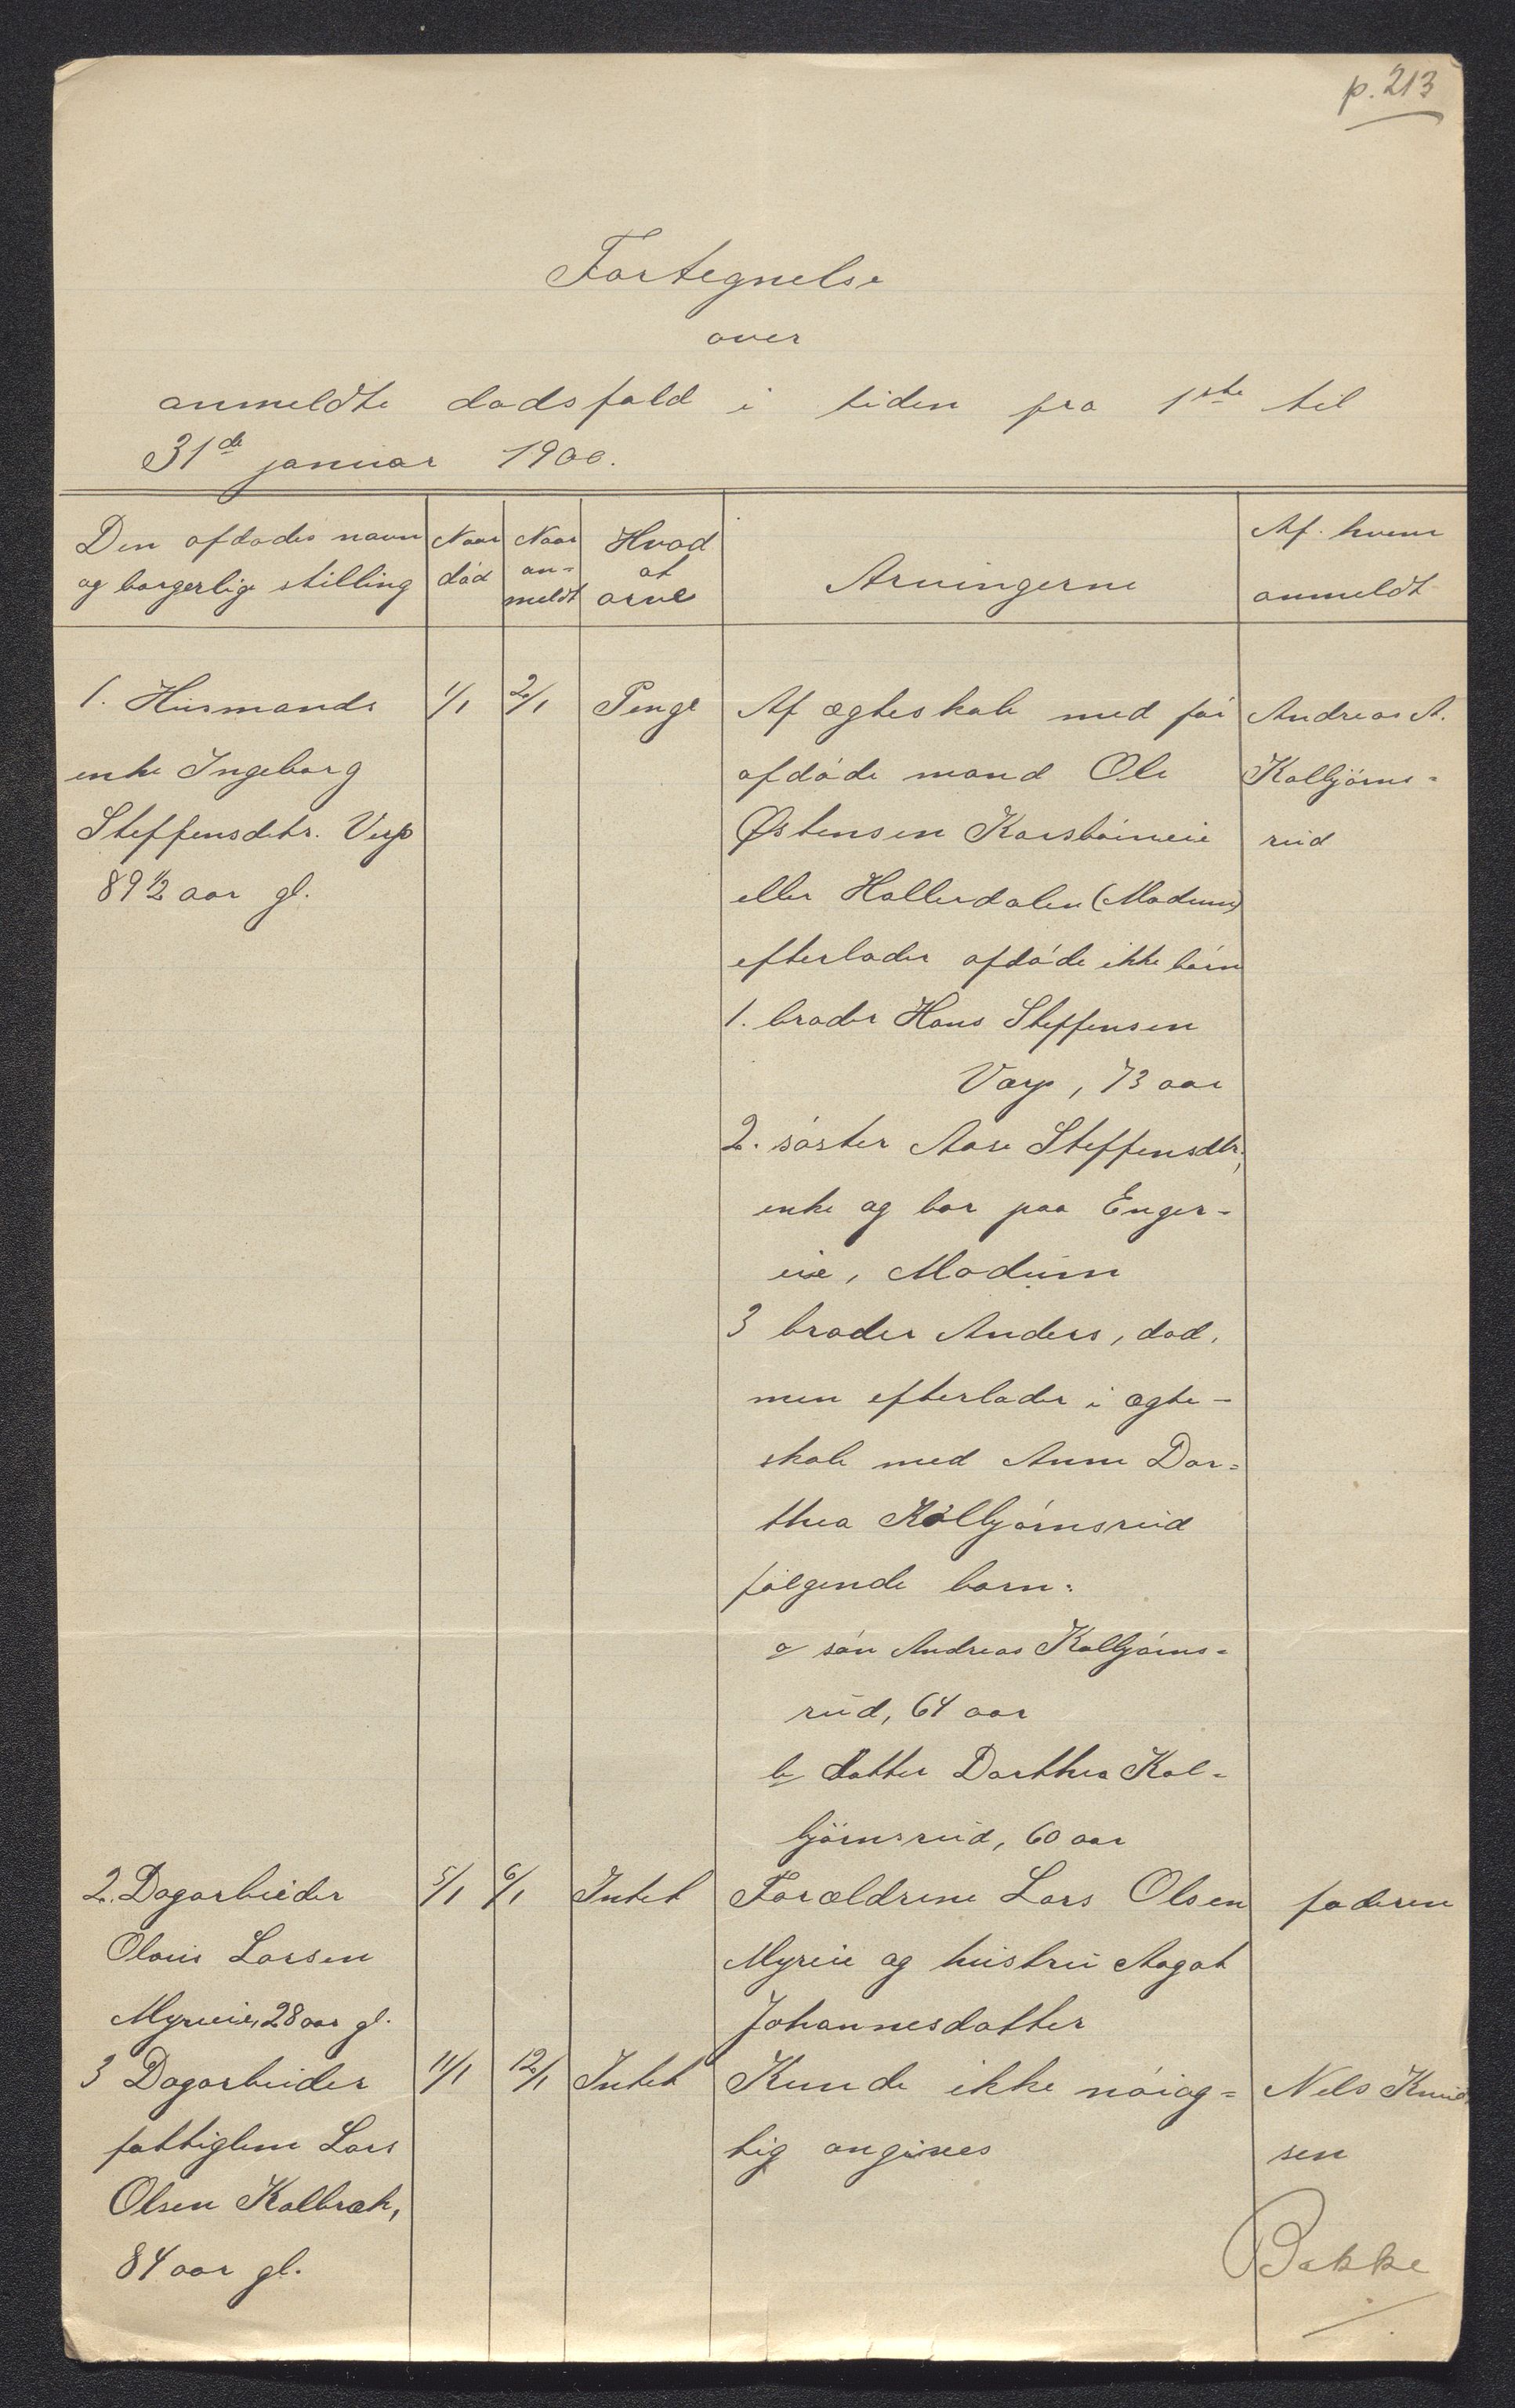 p. 213
Fortegnelse
over
anmeldte dødsfald i tiden fra 1ste til
31de januar 1900.
Den afdødes navn
og borgerlige stilling
Naar
død
Naar
an-
meldt
Hvad
at
arve
Arvingerne
Af hvem
anmeldt
1. Husmands
enke Ingeborg
Steffensdetr. Verp
89 1/2 aar gl.
1/1
2/1
Penge
Af ægteskab med før
afdøde mand Ole
Østensen Korsbøineie
eller Hollerdalen (Modum)
efterlader afdøde ikke børn
1. broder Hans Steffensen
Verp, 73 aar
2. søster Aase Steffensdtr.,
enke og bor paa Enger-
eie, Modum
3 broder Anders, død,
men efterlader i ægte-
skab med Anne Dor-
thea Kolbjørnsrud
følgende børn:
a/ søn Andreas Kolbjørns-
rud, 64 aar
b/ datter Dorthea Kol-
bjørnsrud, 60 aar
Andreas A.
Kolbjørns-
rud
2. Dagarbeider
Olaus Larsen
Myreie, 28 aar gl.
5/1
6/1
Intet
Forældrene Lars Olsen
Myreie og hustru Aagot
Johannesdatter
faderen
3 Dagarbeider
fattiglem Lars
Olsen Kolbræk,
84 aar gl.
11/1
12/1
Intet
Kunde ikke nøiag-
tig angives
Nels Knud
sen
Bakke